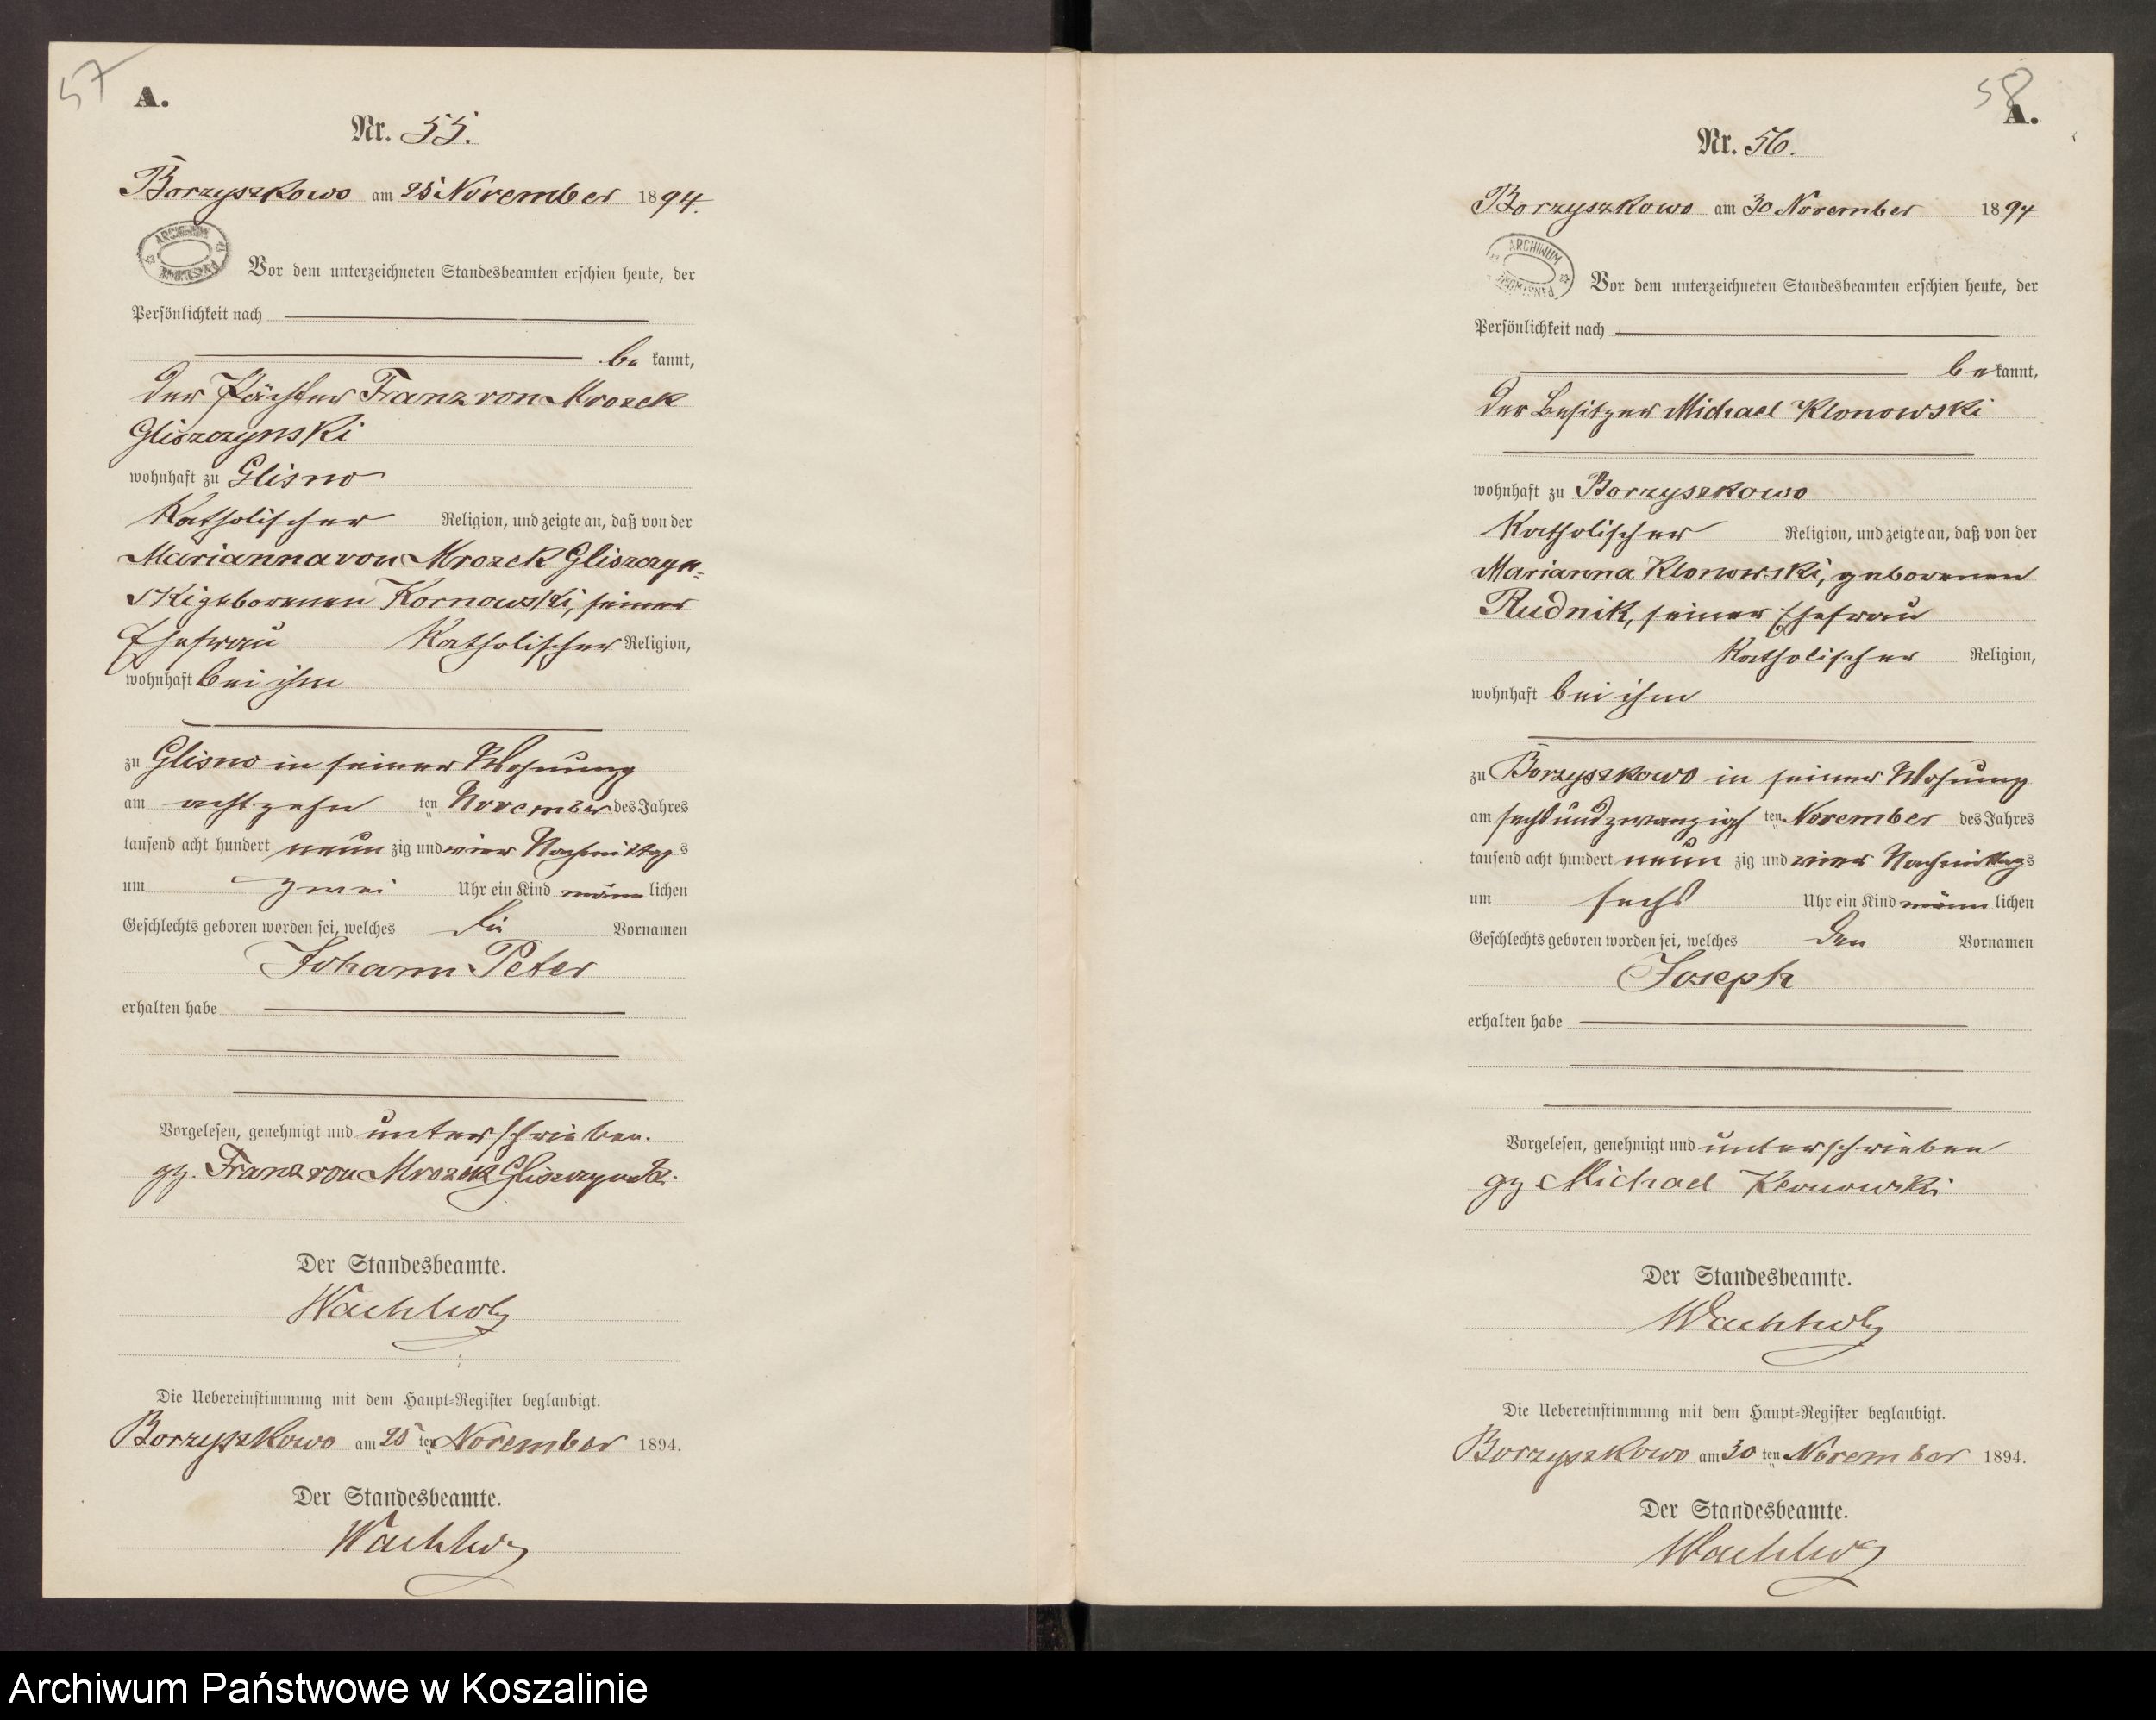 57
A.
Nr. 55.
Borzyszkowo am 25 November 1894.
ARCHIWUM PAŃSTWOWE
Vor dem unterzeichneten Standesbeamten erschien heute, der
Persönlichkeit nach
be kannt,
der Pächter Franz von Mrozek
Gliszczynski
wohnhaft zu Glisno
Katholischer Religion, und zeigte an, daß von der
Marianna von Mrozek Gliszczyn=
ski geborenen Kornowski, seiner
Ehefrau Katholischer Religion,
wohnhaft bei ihm
zu Glisno in seiner Wohnung
am achtzehn ten November des Jahres
tausend acht hundert neun zig und vier Nachmittag s
um zwei Uhr ein Kind männ lichen
Geschlechts geboren worden sei, welches die Vornamen
Johann Peter
erhalten habe
Vorgelesen, genehmigt und unterschrieben.
gz. Franz von Mrozek Gliszczynski.
Der Standesbeamte.
Wachholz
Die Uebereinstimmung mit dem Haupt-Register beglaubigt.
Borzyszkowo am 25 ten November 1894.
Der Standesbeamte.
Wachholz
58
A.
Nr. 56.
Borzyszkowo am 30 November 1894
ARCHIWUM PAŃSTWOWE
Vor dem unterzeichneten Standesbeamten erschien heute, der
Persönlichkeit nach
be kannt,
der Besitzer Michael Klonowski
wohnhaft zu Borzyszkowo
Katholischer Religion, und zeigte an, daß von der
Marianna Klonowski, geborenen
Rudnik, seiner Ehefrau
Katholischer Religion,
wohnhaft bei ihm
zu Borzyszkowo in seiner Wohnung
am sechsundzwanzigs ten November des Jahres
tausend acht hundert neun zig und vier Nachmittag s
um sechs Uhr ein Kind männ lichen
Geschlechts geboren worden sei, welches den Vornamen
Joseph
erhalten habe
Vorgelesen, genehmigt und unterschrieben
gz. Michael Klonowski
Der Standesbeamte.
Wachholz
Die Uebereinstimmung mit dem Haupt-Register beglaubigt.
Borzyszkowo am 30 ten November 1894.
Der Standesbeamte.
Wachholz
Archiwum Państwowe w Koszalinie